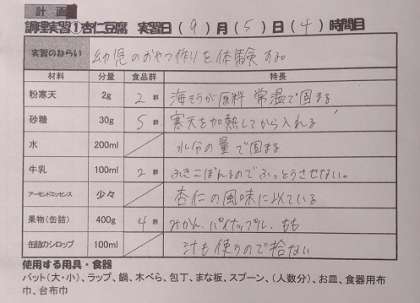 計画
調理実習①杏仁豆腐 実習日(9)月(5)日(4)時間目
実習のねらい 幼児のおやつ作りを体験する
材料 分量 食品群 特長
粉寒天 2g 2群 海そうが原料 常温で固まる
砂糖 30g 5群 寒天を加熱してから入れる
水 200ml 水分の量で固まる
牛乳 100ml 2群 ふきこぼれるのでふっとうさせない。
アーモンドエッセンス 少々 杏仁の風味に似ている
果物(缶詰) 400g 4群 みかん、パイナップル、もも
缶詰のシロップ 100ml 汁も使うので捨ない
使用する用具・食器
バット(大・小)、ラップ、鍋、木べら、包丁、まな板、スプーン、(人数分)、お皿、食器用布
巾、台布巾